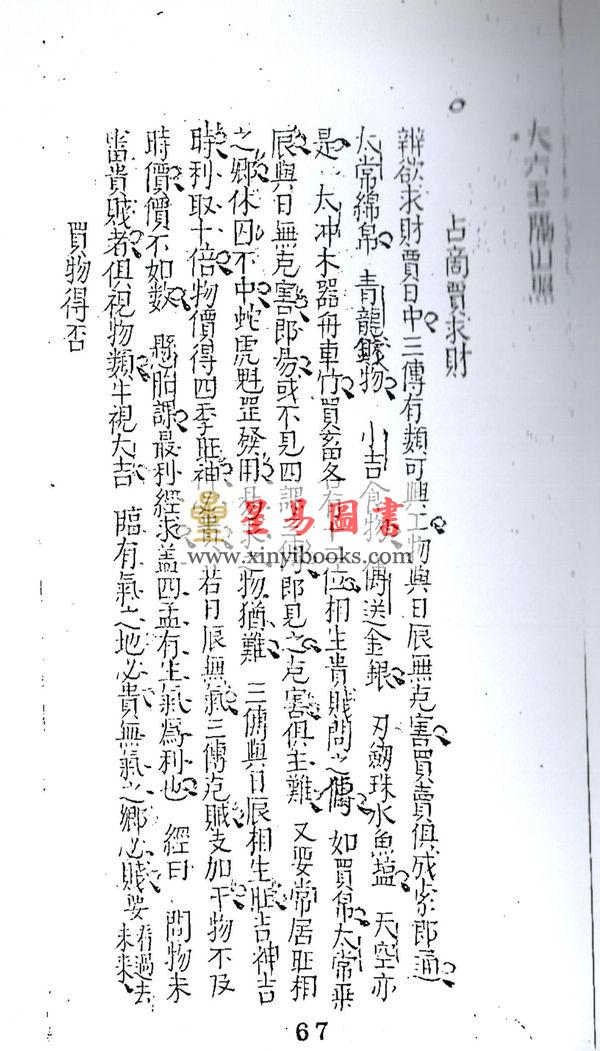 大六壬隔山照
占啇買求財
辨欲求財賈日中三傳有類可興工物與日辰無克害買賣俱成索即通
太常綿帛 青龍錢物 小吉食物 傳送金銀 刃劔珠水魚塩 天空亦
是 太冲木器舟車竹買畜各有 位相生貴賤問之傳 如買帛太常乗
辰與日無克害即易或不見四課三傳即見之克害俱主難 又要常居旺相
之郷休囚不中蛇虎魁罡發用 物猶難 三傳與日辰相生旺吉神吉
時利取十倍物價得四季旺神 若日辰無氣三傳克賊支加干物不及
時價價不如数 懸胎課最利經求盖四孟有生氣爲利也 經曰 問物未
當貴賤者俱視物類牛視大吉 臨有氣之地必貴無氣之郷必賤要看過去未来
買物得否
星易圖書
www.xinyibooks.com
67